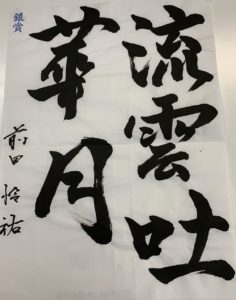 流雲吐
華月
銀賞
前田怜祐